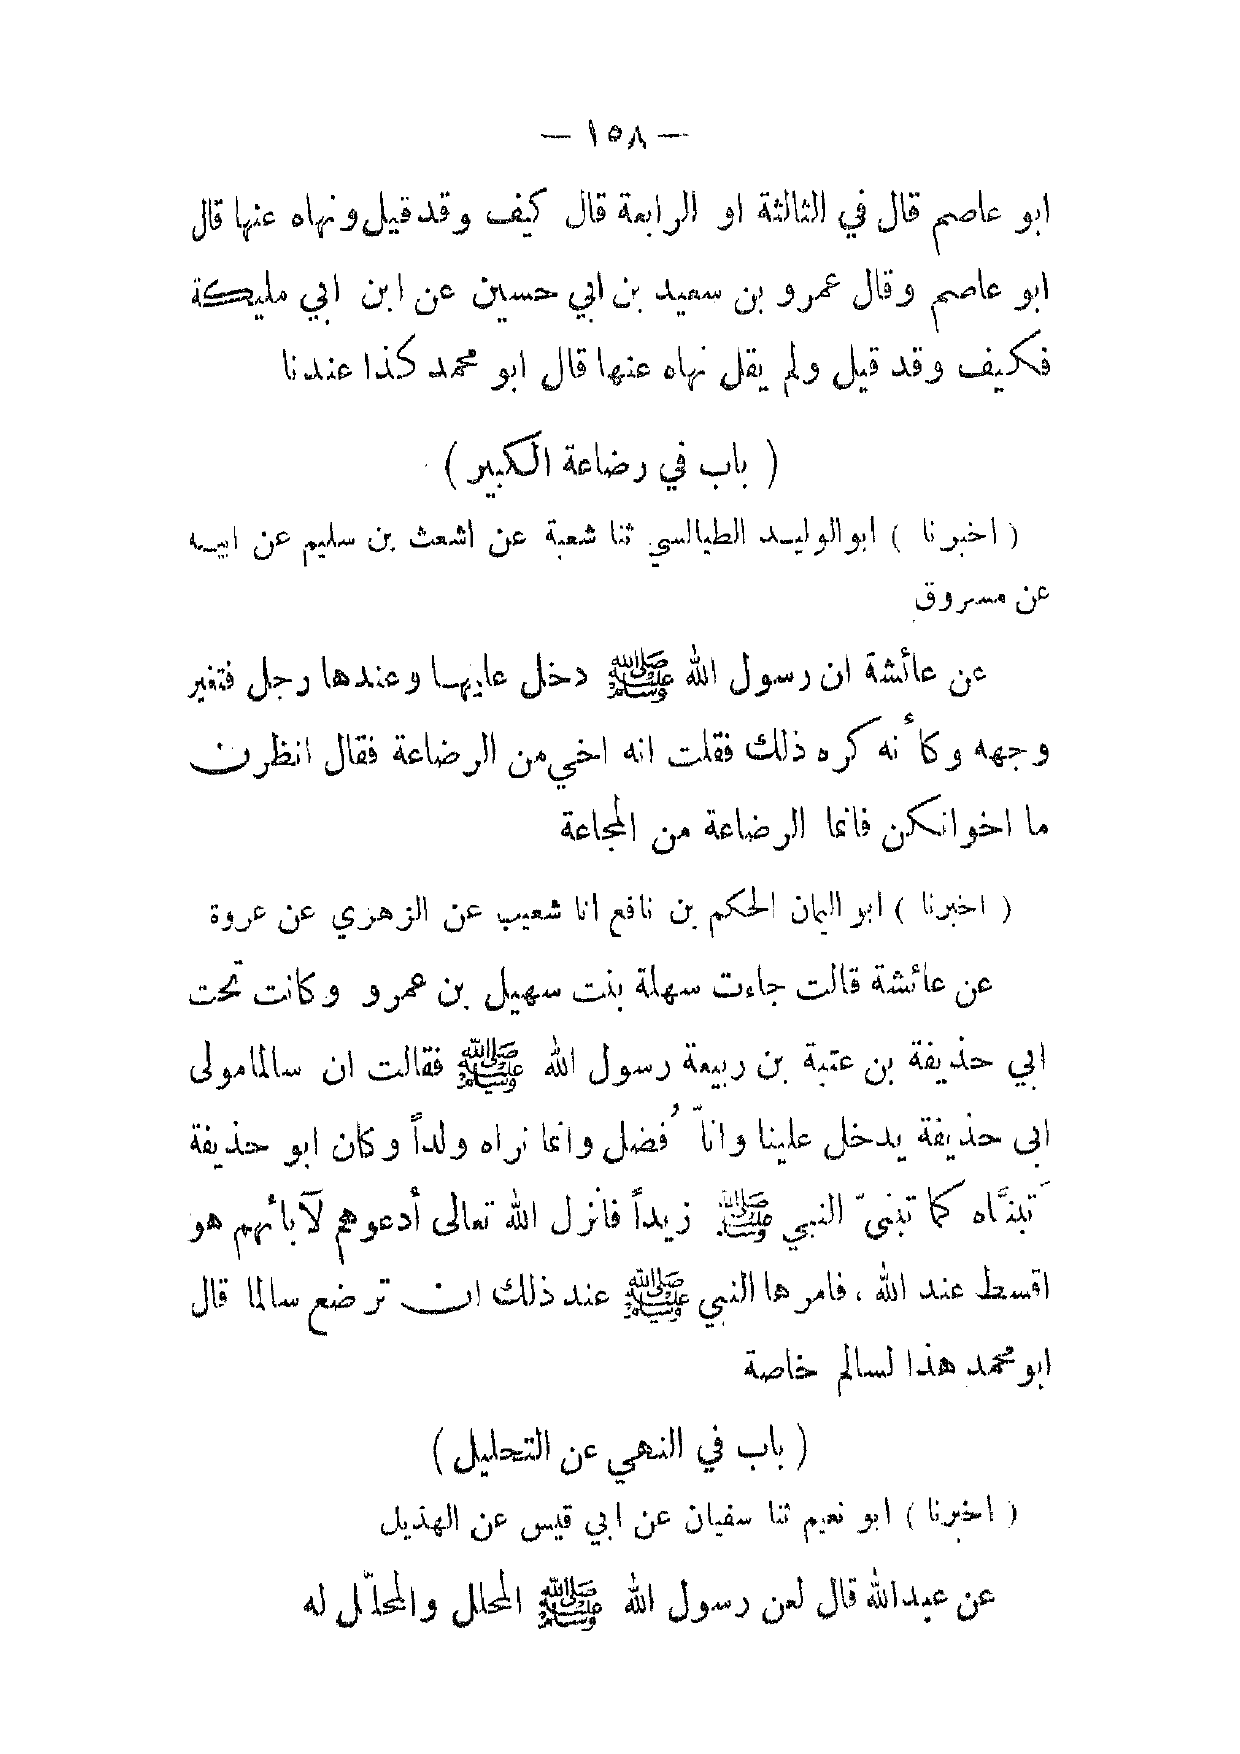 — ١٥٨ —
ابو عاصم قال في الثالثة او الرابعة قال كيف وقد قيل ونهاه عنها قال
ابو عاصم وقال عمرو بن سعيد بن ابي حسين عن ابن ابي مليكة
فكيف وقد قيل ولم يقل نهاه عنها قال ابو محمد كذا عندنا
( باب في رضاعة الكبير )
( اخبرنا ) ابو الوليد الطيالسي ثنا شعبة عن اشعث بن سليم عن ابيه
عن مسروق
عن عائشة ان رسول الله ﷺ دخل عليها وعندها رجل فتغير
وجهه وكأنه كره ذلك فقلت انه اخي من الرضاعة فقال انظرن
ما اخوانكن فانما الرضاعة من المجاعة
( اخبرنا ) ابو اليمان الحكم بن نافع انا شعيب عن الزهري عن عروة
عن عائشة قالت جاءت سهلة بنت سهيل بن عمرو وكانت تحت
ابي حذيفة بن عتبة بن ربيعة رسول الله ﷺ فقالت ان سالما مولى
ابى حذيفة يدخل علينا وانّا فُضل وانما نراه ولداً وكان ابو حذيفة
تَبنَّاه كما تبنىّ النبي ﷺ زيداً فانزل الله تعالى أدعوهم لآبائهم هو
اقسط عند الله ، فامرها النبي ﷺ عند ذلك ان ترضع سالما قال
ابو محمد هذا لسالم خاصة
( باب في النهي عن التحليل )
( اخبرنا ) ابو نعيم ثنا سفيان عن ابي قيس عن الهذيل
عن عبد الله قال لعن رسول الله ﷺ المحلل والمحلّل له